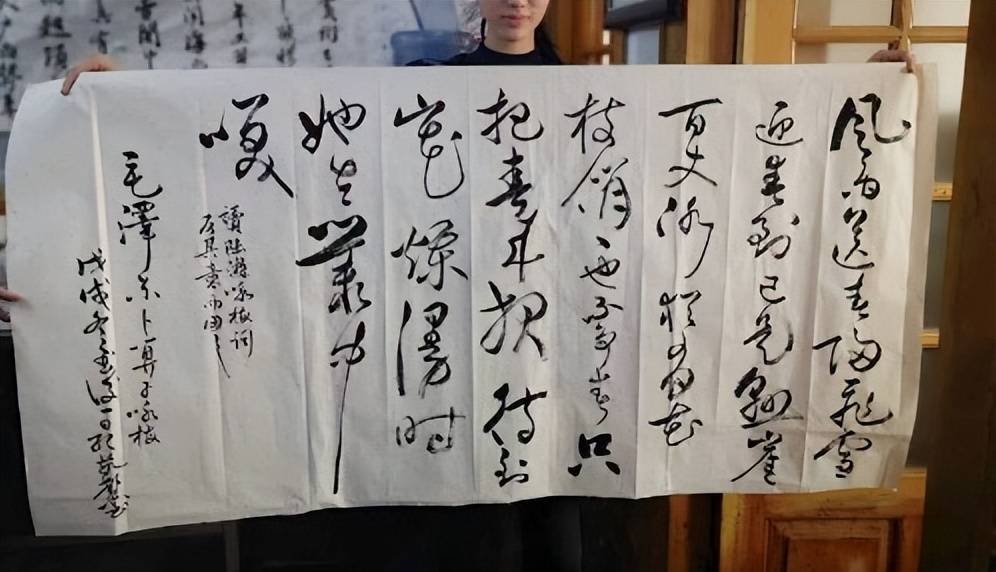 风雨送春归飛雪
迎春到已是悬崖
百丈冰犹有花
枝俏也不争春只
把春来报待到
山花爛漫时
她在叢中
咲
讀陆游咏梅词
反其意而用之
毛澤东卜算子咏梅
戊戌冬